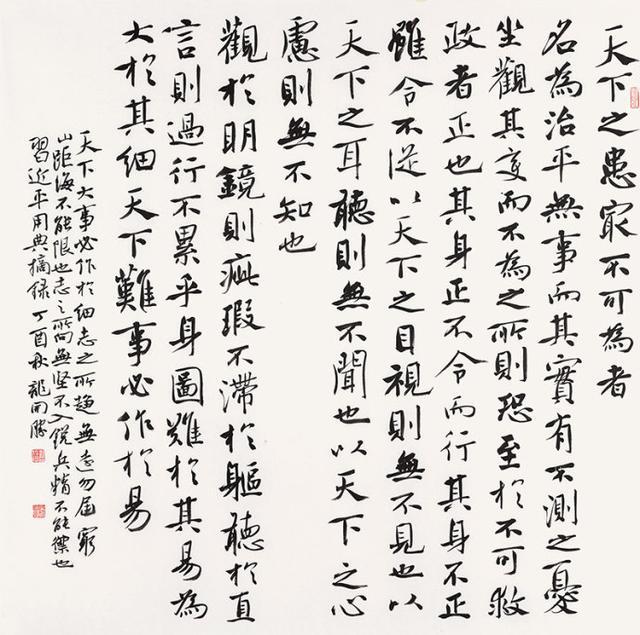 天下之患最不可為者
名為治平無事而其實有不測之憂
坐觀其變而不為之所則恐至於不可救
政者正也其身正不令而行其身不正
雖令不從以天下之目視則無不見也以
天下之耳聽則無不聞也以天下之心
慮則無不知也
觀於明鏡則疵瑕不滯於軀聽於直
言則過行不累乎身圖難於其易為
大於其細天下難事必作於易
天下大事必作於細志之所趨無遠勿屆窮
山距海不能限也志之所向無堅不入銳兵精不能禦也
習近平用典摘録丁酉秋龍開勝